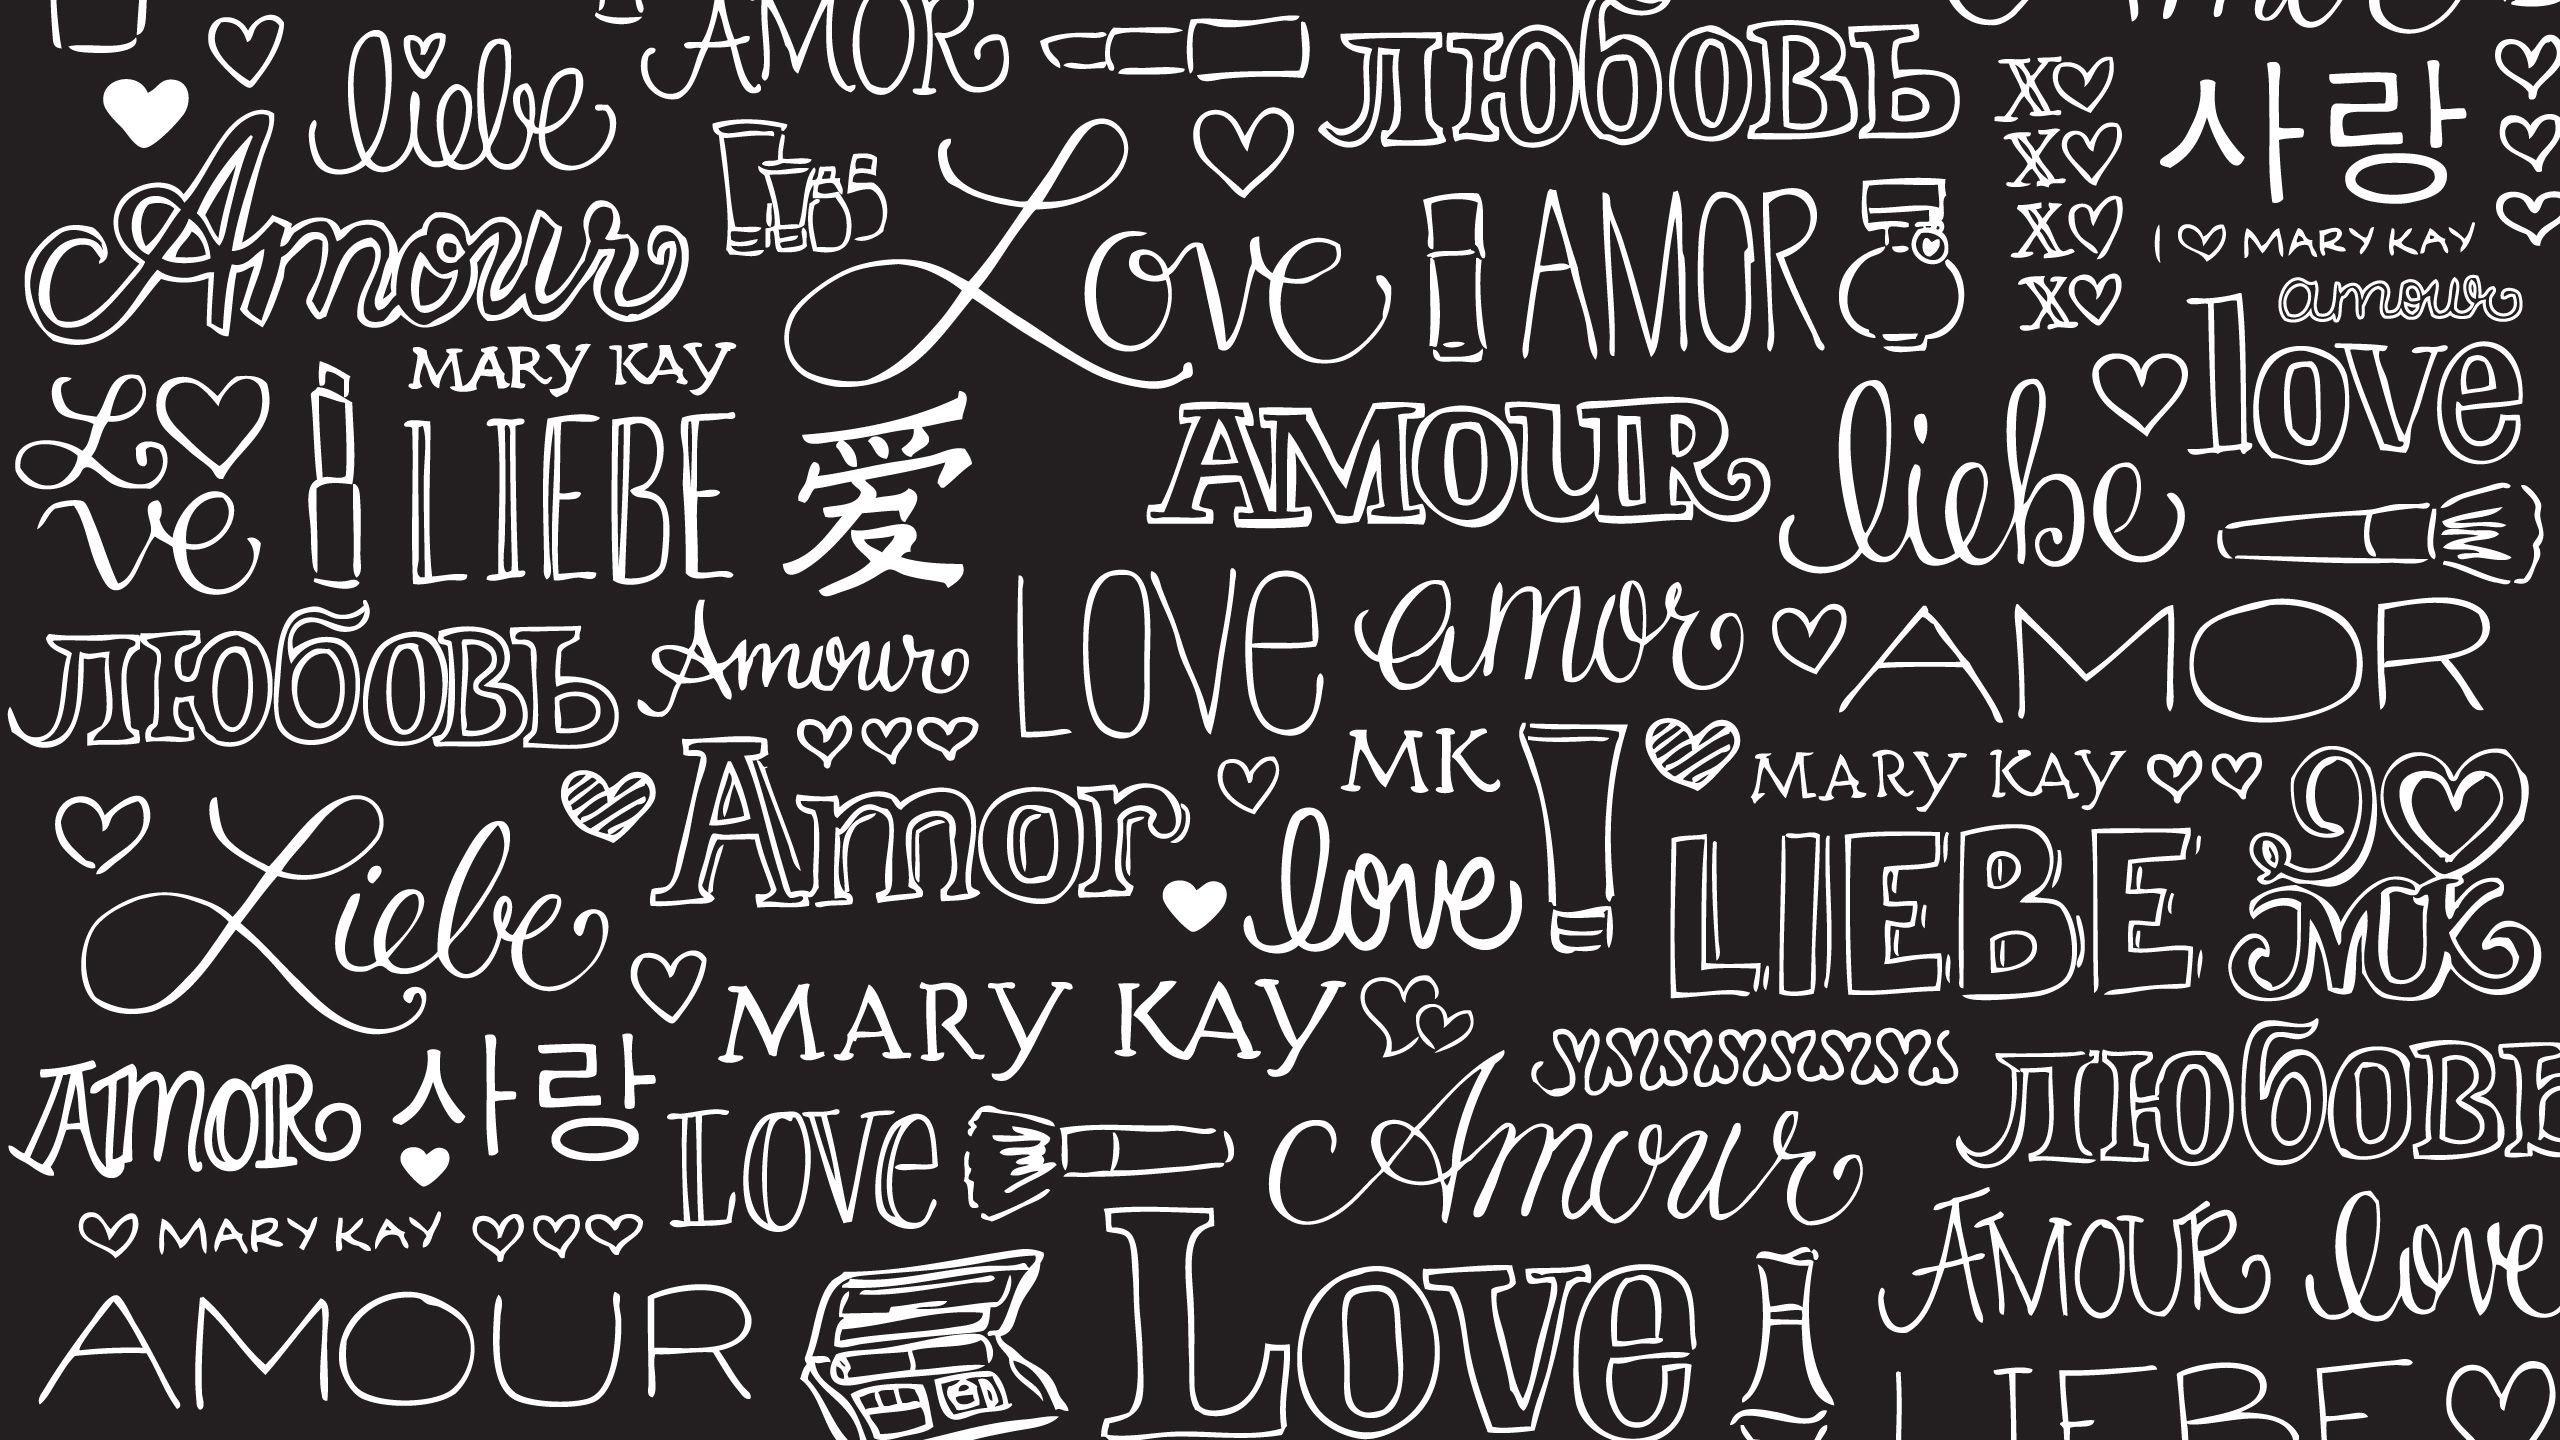 AMOR
любовь
liebe
x
x
x
x
사랑
Amour
Love
AMOR
I ♡ MARY KAY
amour
love
MARY KAY
L♡
ve
LIEBE
爱
AMOUR
liebe
LOVE
amor
AMOR
любовь
Amour
Amor
MK
MARY KAY
love
LIEBE
MK
Liebe
MARY KAY
AMOR
사랑
LOVE
Amour
любовь
MARY KAY
AMOUR
love
AMOUR
Love
LIEBE